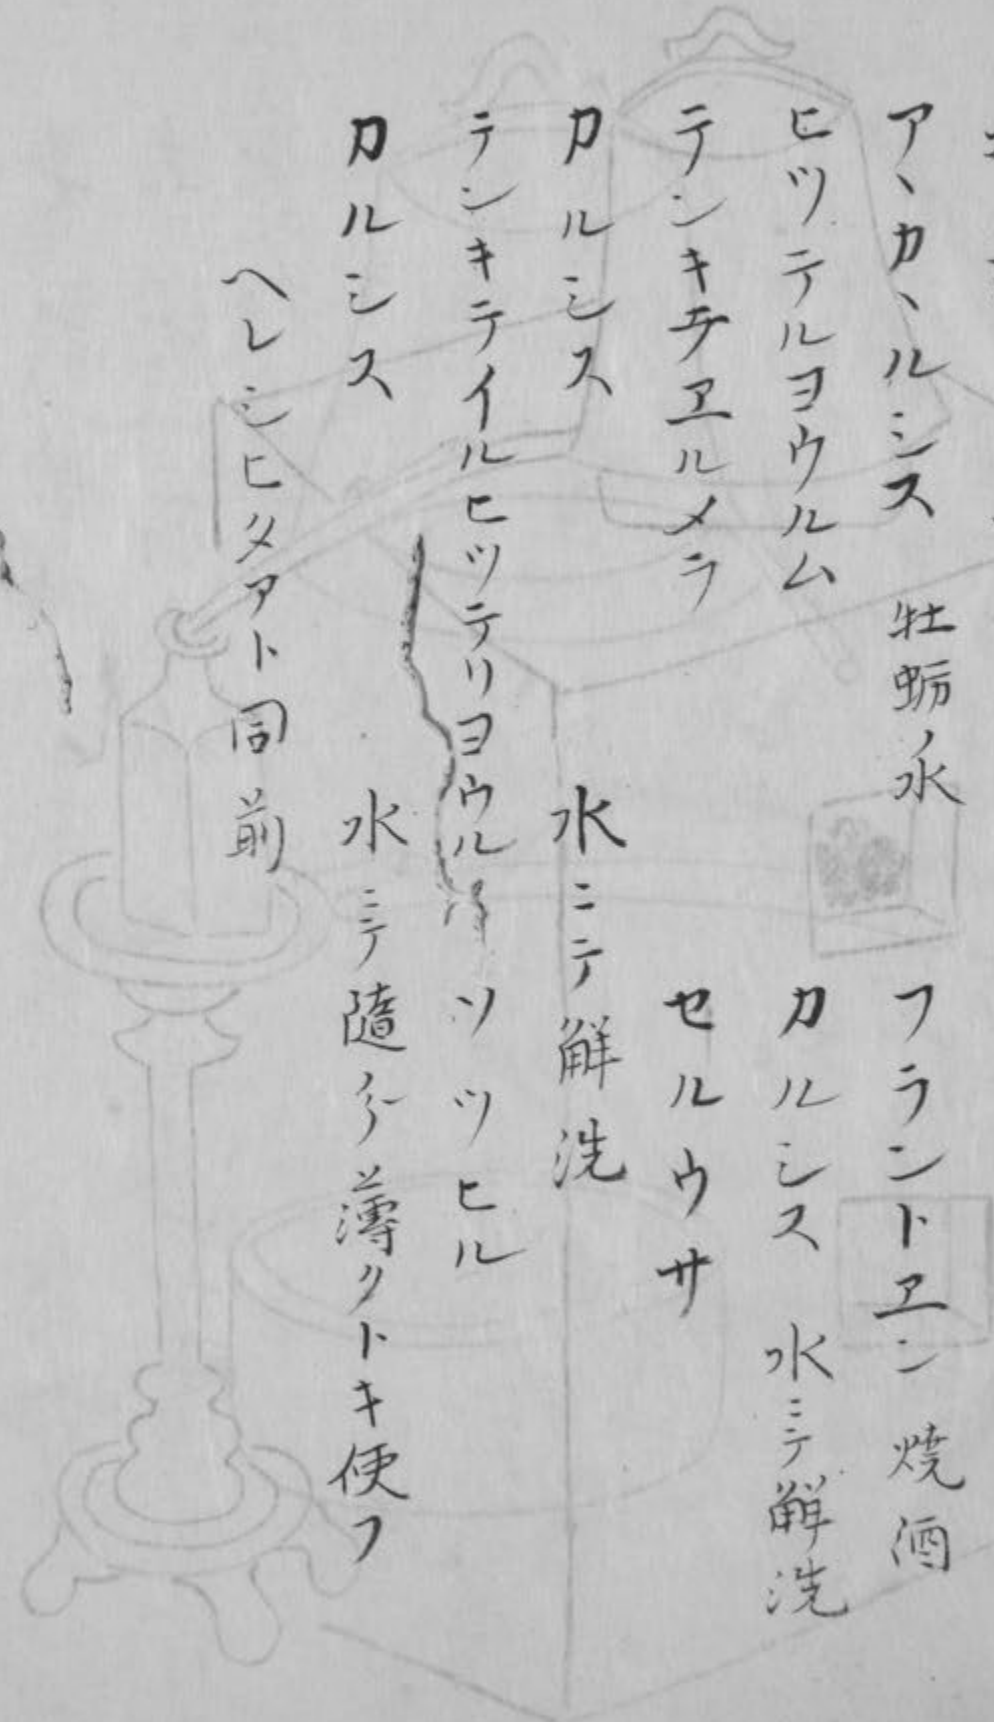 ア、カ、ルシス 牡蛎ノ水 フラントヱン 焼酒
ヒツテルヨウルム カルシス 水ニテ解洗
テンキテヱルメラ セルウサ
カルシス 水ニテ解洗
テンキテイルヒツテリヨウル ソツヒル
カルシス 水ニテ随分薄クトキ便フ
ヘレシヒタアト同前